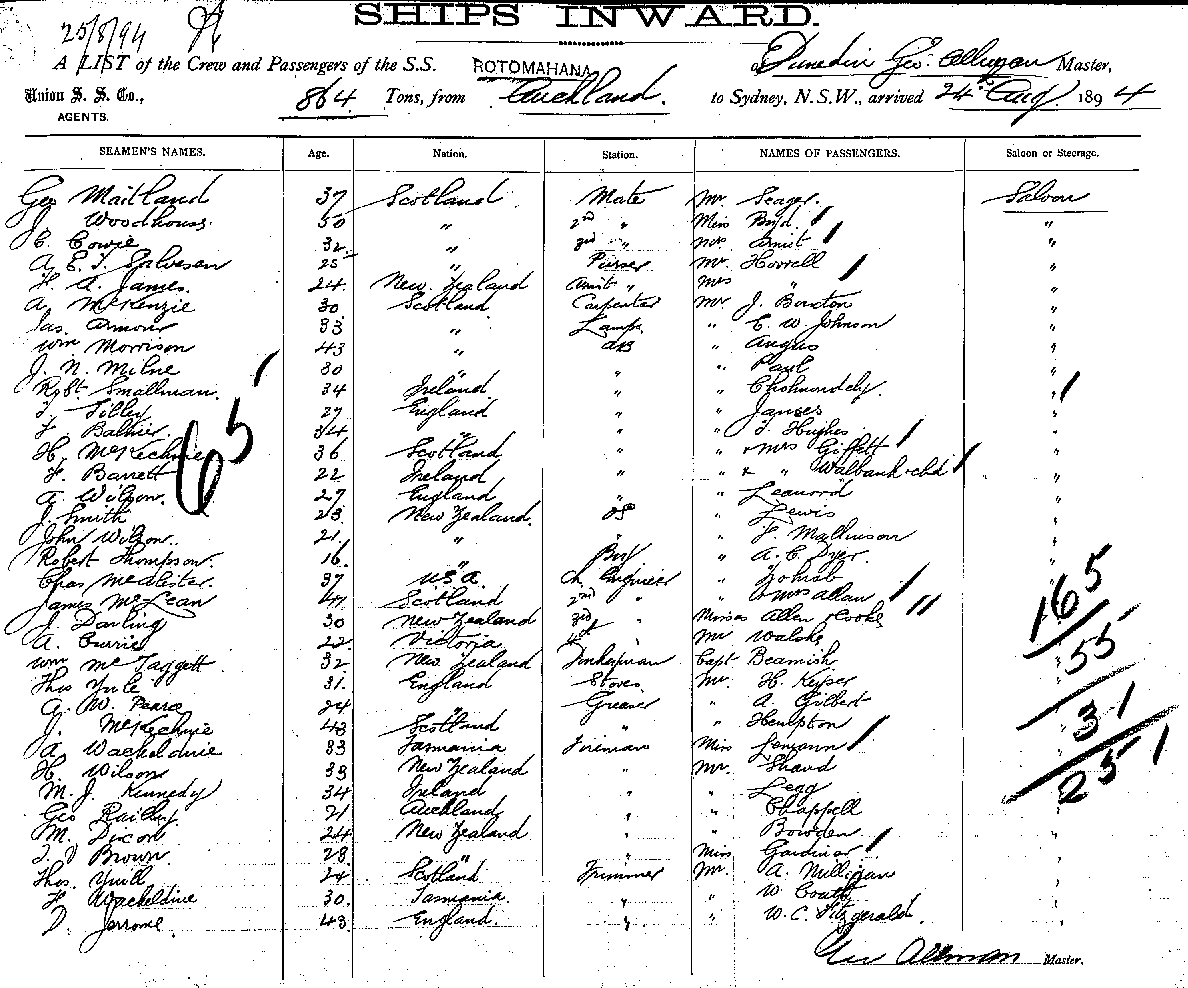 25/8/94
SHIPS INWARD.
A LIST of the Crew and Passengers of the S.S. ROTOMAHANA of Dunedin Geo. Allman Master,
Union S. S. Co., 864 Tons, from Auckland. to Sydney, N.S.W., arrived 24th Aug 1894
AGENTS.
SEAMEN'S NAMES. Age. Nation. Station. NAMES OF PASSENGERS. Saloon or Steerage.
Geo Maitland 37 Scotland Mate Mr Seager Saloon
J. Woodhouse 50 " 2nd " Miss Byrd "
C. Cowie 32 " 3rd " Mrs Amit "
A. E. T. Salvesen 25 " Purser Mr. Horrell "
H. A. James. 24 New Zealand Assist " Mrs " "
A. McKenzie 30 Scotland Carpenter Mr J. Boxton "
Jas. Armour 33 " Lamps " C. W Johnson "
Wm Morrison 43 " AB " Angus "
J. N. Milne 30 " " " Paul "
Robt. Smallman 34 Ireland " " Cholmondely "
F. Tilley 27 England " " James "
34 " " " F. Hughes "
H. McKechnie 36 Scotland " " + Mrs Giffett "
F. Barrett 22 Ireland " " + " Walbank + chd "
A. Wilson. 27 England " " Leanord "
J. Smith 23 New Zealand. OS " Lewis "
John Wilson. 21 " " " F. Mallinson "
Robert Thompson. 16 " Boy " A. C. Dyer "
Chas McAlister. 37 U.S.A. Ch. Engineer " "
James McLean 41 Scotland 2nd " " + Mrs Allan "
J. Darling 30 New Zealand 3rd " Misses Allen + Cooke "
A. Currie 22 Victoria 4th " Mr Walske "
Wm McTaggett 32 New Zealand Capt Beamish "
Thos Yule 31. England Stores Mr. H. Keyser "
G. W. 24 " Greaser " A. Gilbert "
J. McKechnie 43 Scotland " " Hempton "
A. Wackeldine 33 Tasmania Fireman Miss "
H. Wilson 33 New Zealand " Mr. Shand "
M. J. Kennedy 34 Ireland " " Legg "
Geo Railley 21 Auckland " " Chappell "
M. Dixon 24 New Zealand " " Bowden "
T. D Brown. 28. " " Miss Gardiner "
Thos. Yuill 24 Scotland Trimmer Mr. A. Milligan "
F Wackeldine 30. Tasmania " " W. Coutts "
D. Jerrome 43 England. " " W. C. Fitzgerald. "
65
165
55
31
251
Geo Allman Master.